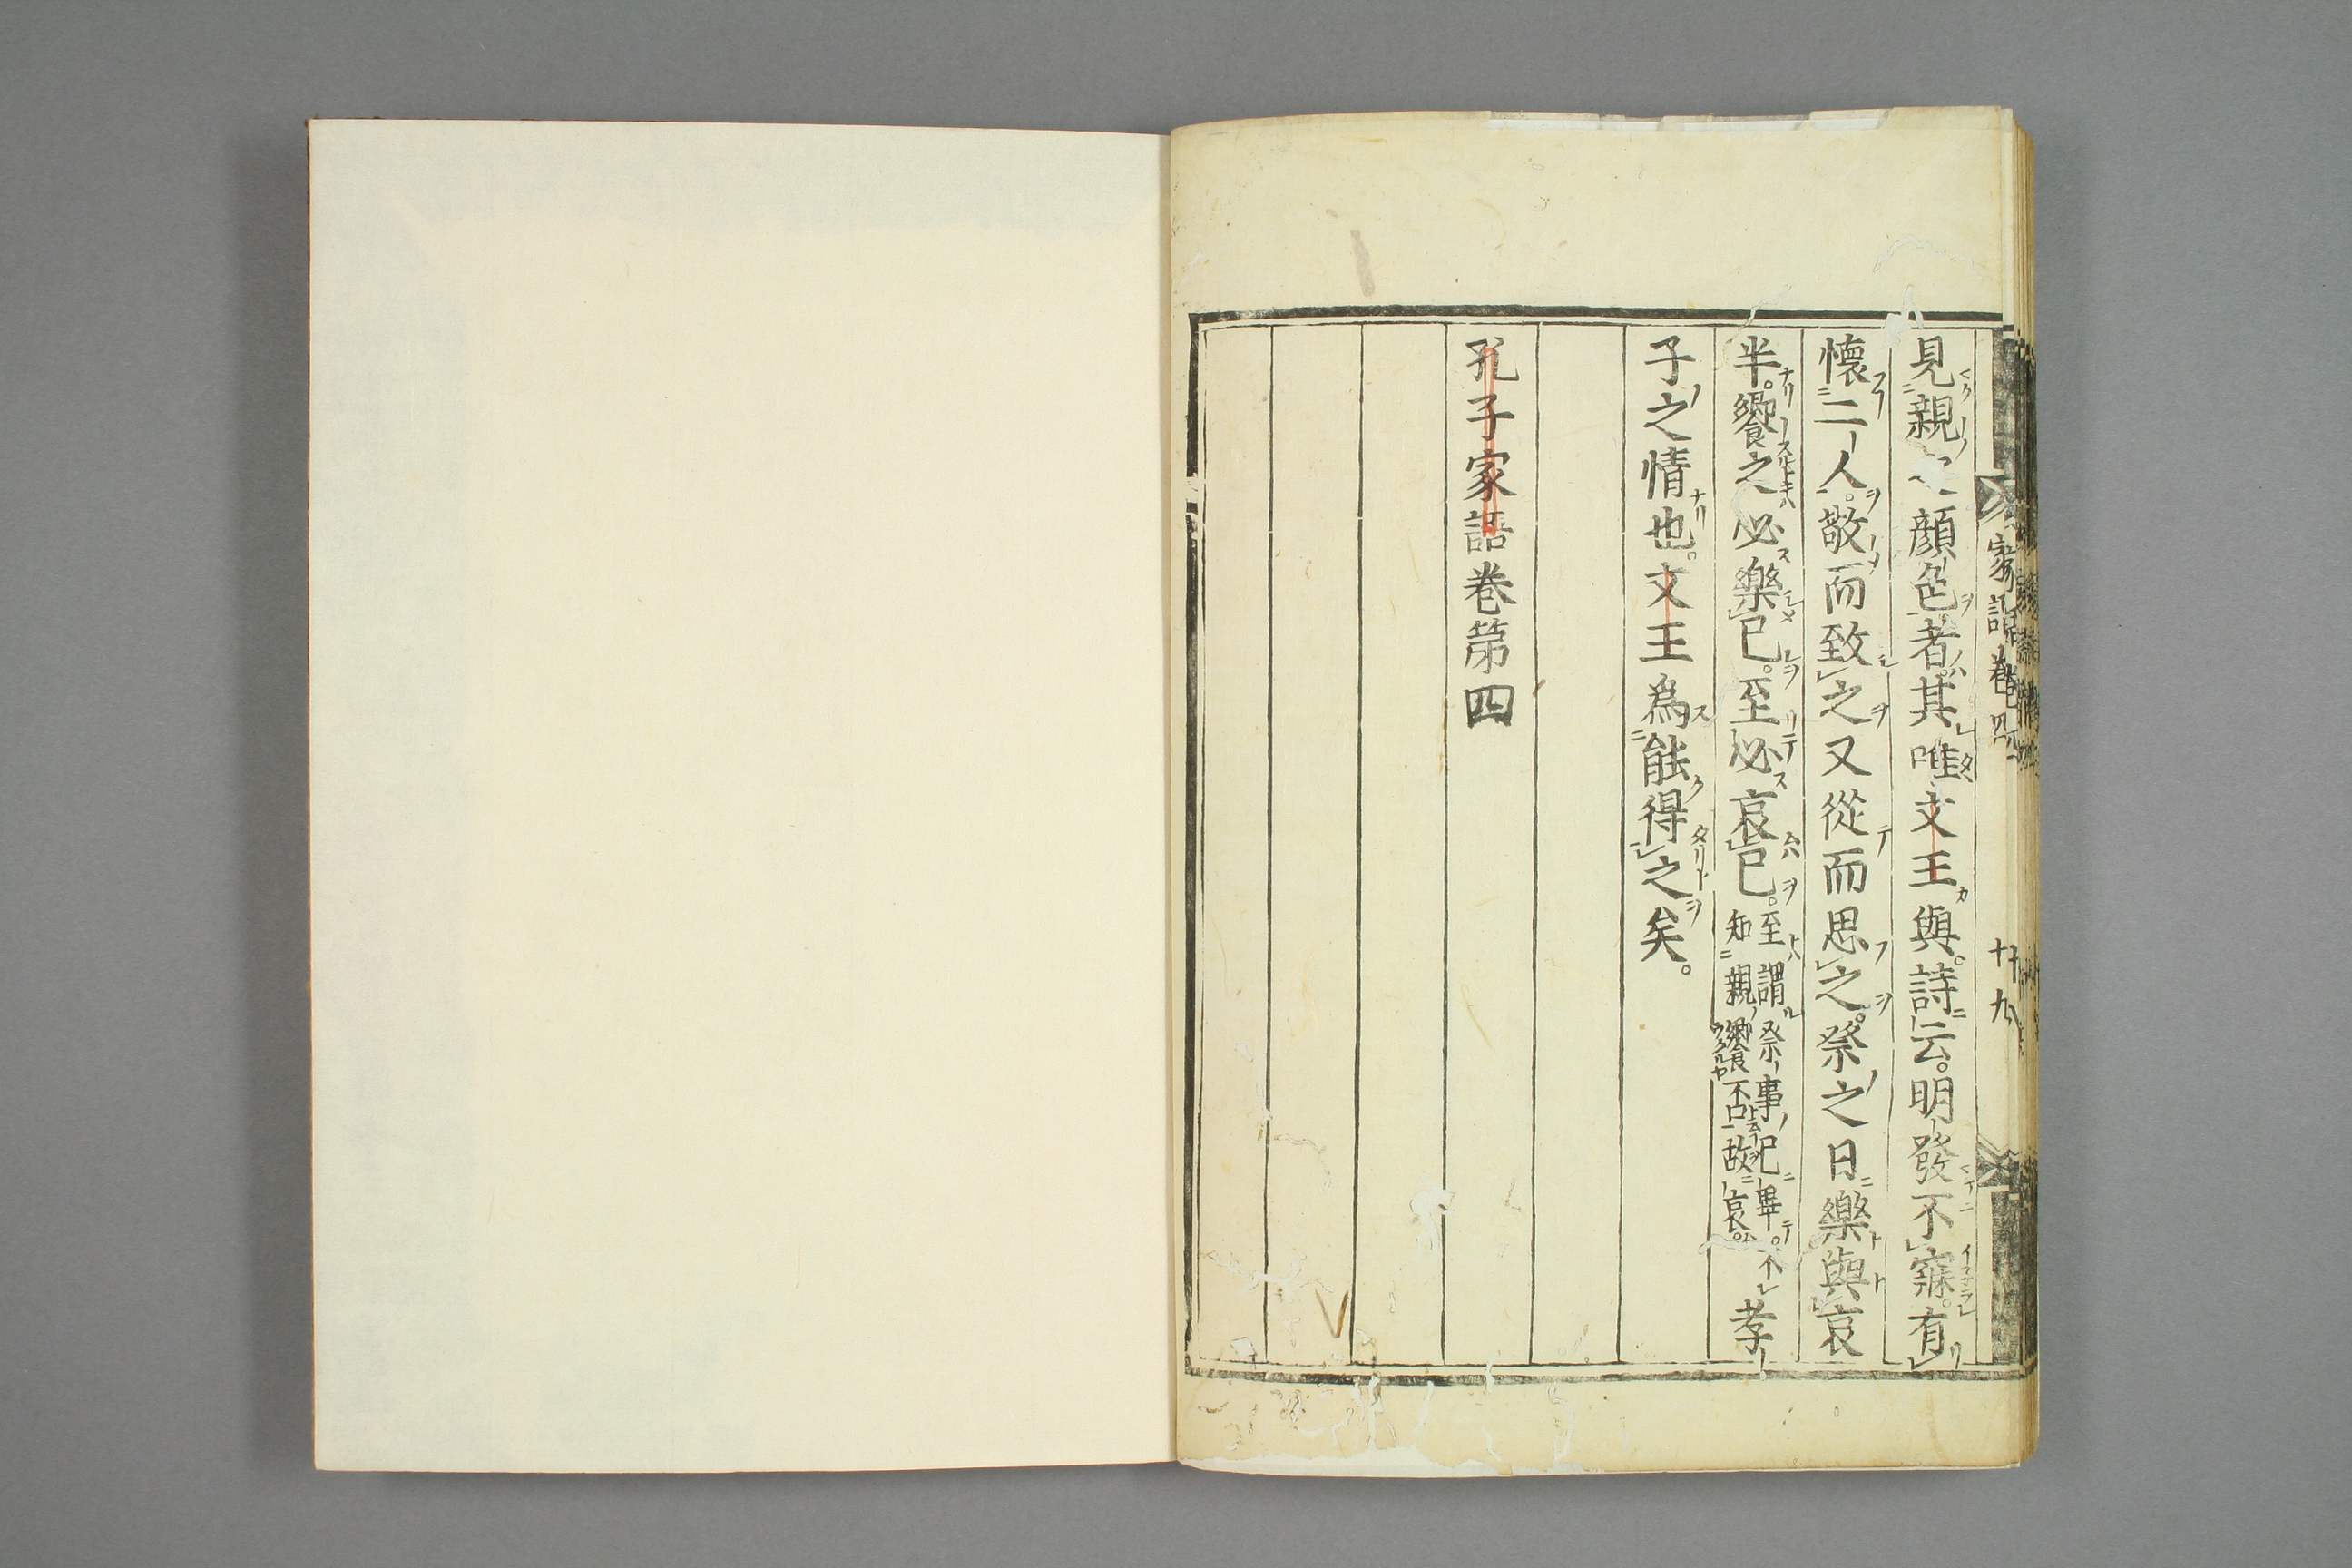 家語卷四
十九
見親顔色者。其唯文王與。詩云。明發不寐。有
懷二人。敬而致之又從而思之。祭之日樂與哀
半。饗之必樂已。至必哀已。
至謂祭事祀畢。不
知親饗否故哀。
孝
子之情也。文王爲能得之矣。
孔子家語卷第四